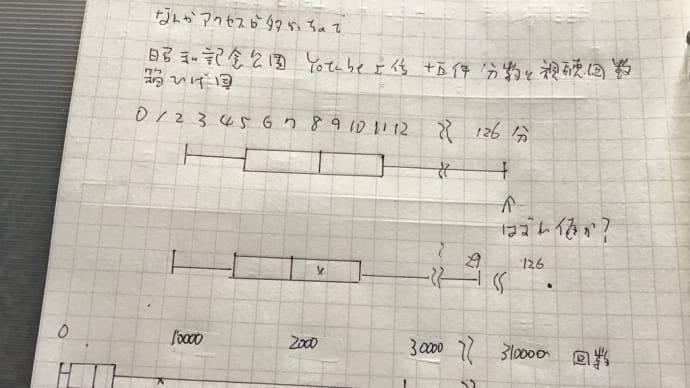 なんかアクセスが多かったので
昭和記念公園 Yotube上位 十五件 分数と視聴回数
箱ひげ図
0 1 2 3 4 5 6 7 8 9 10 11 12 126 分
はずれ値か?
? 29 126
0 10000 2000 30000 310000 回数